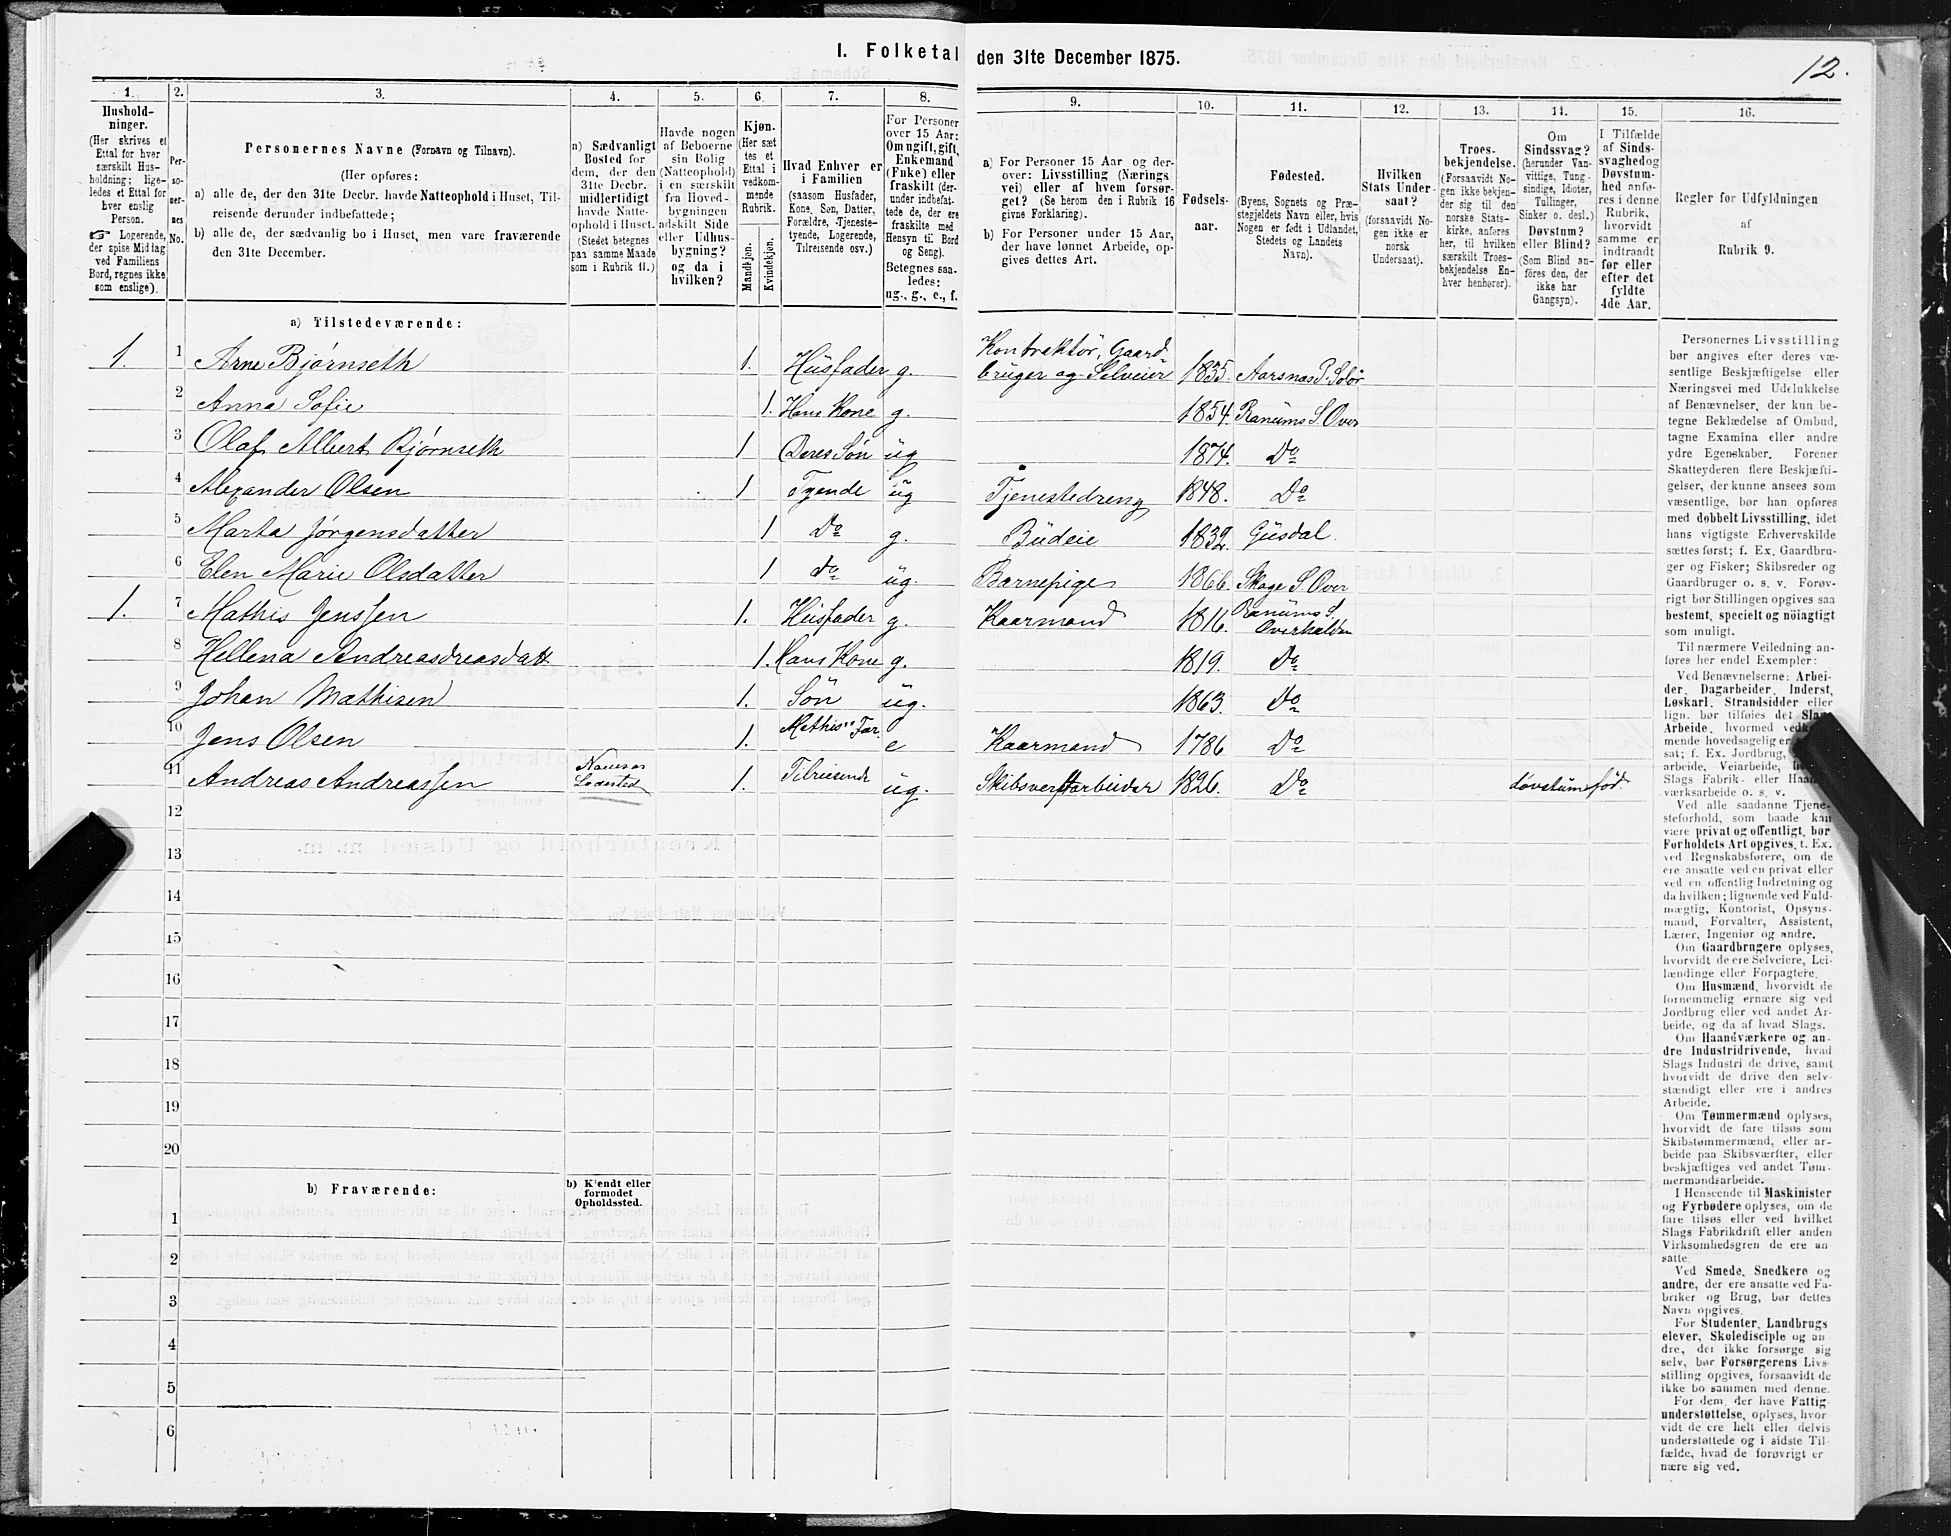 I. Folketal den 31te December 1875.
12.
1. 2. 3. 4. 5. 6. 7. 8. 9. 10. 11. 12. 13. 14. 15. 16.
Hushold-
ninger.
(Her skrives et
Ettal for hver
særskilt Hus-
holdning; lige-
ledes et Ettal for
hver enslig
Person.
☞ Logerende,
der spise Middag
ved Familiens
Bord, regnes ikke
som enslige).
Per-
so-
ner-
nes
No.
Personernes Navne (Fornavn og Tilnavn).
(Her opføres:
a) alle de, der den 31te Decbr. havde Natteophold i Huset, Til-
reisende derunder indbefattede;
b) alle de, der sædvanlig bo i Huset, men vare fraværende
den 31te December.
a) Sædvanligt
Bosted for
dem, der den
31te Decbr.
midlertidigt
havde Natte-
ophold i Huset.
(Stedet betegnes
paa samme Maade
som i Rubrik 11.)
Havde nogen
af Beboerne
sin Bolig
(Natteophold)
i en særskilt
fra Hoved-
bygningen
adskilt Side
eller Udhus-
bygning?
og da i
hvilken?
Kjøn.
(Her sæt
tes et
Ettal i
vedkom-
mende
Rubrik.
Mandkjøn.
Kvindekjøn.
Hvad Enhver er
i Familien
(saasom Husfader,
Kone, Søn, Datter,
Forældre, Tjeneste-
tyende, Logerende,
Tilreisende osv.)
For Personer
over 15 Aar:
Om ugift, gift,
Enkemand
(Enke) eller
fraskilt (der-
under indbefat-
tede de, der ere
fraskilte med
Hensyn til Bord
og Seng).
Betegnes saa-
ledes:
ug., g., e., f.
a) For Personer 15 Aar og der-
over: Livsstilling (Nærings
vei) eller af hvem forsør-
get? (Se herom den i Rubrik 16
givne Forklaring).
b) For Personer under 15 Aar,
der have lønnet Arbeide, op-
gives dettes Art.
Fødsels-
aar.
Fødested.
(Byens, Sognets og Præ-
stegjeldets Navn eller, hvis
Nogen er født i Udlandet,
Stedets og Landets
Navn).
Hvilken
Stats Under-
saat?
(forsaavidt No-
gen ikke er
norsk
Undersaat).
Troes-
bekjendelse.
(Forsaavidt No-
gen ikke bekjen-
der sig til den
norske Stats-
kirke, anføres
her, til hvilken
særskilt Troes-
bekjendelse En-
hver henhører).
Om
Sindssvag?
(herunder Van-
vittige, Tung-
sindige, Idioter,
Tullinger,
Sinker o. desl.)
Døvstum?
eller Blind?
(Som Blind an-
føres den, der
ikke har
Gangsyn).
I Tilfælde
af Sinds-
svaghed og
Døvstum-
hed anfø-
res i denne
Rubrik,
hvorvidt
samme er
indtraadt
før eller
efter det
fyldte
4de Aar.
Regler for Udfyldningen
af
Rubrik 9.
a) Tilstedeværende:
1. 1 Arne Bjørnseth 1. Husfader g. Kontraktør, Gaard-
bruger og Selveier 1835. Aarsnas P. Solør
2 Anna Sofie 1. Hans Kone g. 1854. Ranums S. Over
3 Olaf Albert Bjørnseth 1 Deres Søn ug 1874. Do
4 Alexander Olsen 1 Tyende ug Tjenestedreng 1848. Do
5 Marta Jørgensdatter 1 Do g. Budeie 1832. Gusdal.
6 Elen Marie Olsdatter 1 do ug. Barnepige 1866. Skage S. Over
1. 7 Mathis Jenssen 1. Husfader g. Kaarmand 1816. Ranums S
Overhalden
8 Hellena Andreasdreasdatt 1. Hans Kone g. 1819. Do
9 Johan Mathisen 1. Søn ug. 1863. Do
10 Jens Olsen 1. Mathis's Far. e Kaarmand 1786 Do
11 Andreas Andreassen Namsos
Ladested 1. Tilreisende ug. Skibsverftarbeider 1826. Do døvstum fød.
12
13
14
15
16
17
18
19
20
b) Fraværende:
b) Kjendt eller
formodet
Opholdssted.
1
2
3
4
5
6
Personernes Livsstilling
bør angives efter deres væ-
sentlige Beskjæftigelse eller
Næringsvei med Udelukkelse
af Benævnelser, der kun be-
tegne Beklædelse af Ombud,
tagne Examina eller andre
ydre Egenskaber. Forener
Skatteyderen flere Beskjæfti-
gelser, der kunne ansees som
væsentlige, bør han opføres
med dobbelt Livsstilling, idet
hans vigtigste Erhvervskilde
sættes først; f. Ex. Gaardbru-
ger og Fisker; Skibsreder og
Gaardbruger o. s. v. Forøv-
rigt bør Stillingen opgives saa
bestemt, specielt og nöiagtigt
som muligt.
Til nærmere Veiledning an-
føres her endel Exempler:
Ved Benævnelserne: Arbei-
der, Dagarbeider, Inderst,
Løskarl, Strandsidder eller
lign. bør tilføies det Slags
Arbeide, hvormed vedkom-
mende hovedsagelig er
sat; f. Ex. Jordbrug,
arbeide, Veiarbeide,
Slags Fabrik- eller Haand-
værksarbeide o. s. v.
Ved alle saadanne Tjene-
steforhold, som baade kan
være privat og offentligt, bør
Forholdets Art opgives, t. Ex.
ved Regnskabsførere, om de
ere ansatte ved en privat eller
ved en offentlig Indretning og
da hvilken; lignende ved Fuld-
mægtig, Kontorist, Opsyns-
mand, Forvalter, Assistent,
Lærer, Ingeniør og andre.
Om Gaardbrugere oplyses,
hvorvidt de ere Selveiere, Lei-
lændinge eller Forpagtere.
Om Husmænd, hvorvidt de
fornemmelig ernære sig ved
Jordbrug eller ved andet Ar-
beide, og da af hvad Slags.
Om Haandværkere og an-
dre Industridrivende, hvad
Slags Industri de drive, samt
hvorvidt de drive den selv-
stændigt eller ere i andres
Arbeide.
Om Tømmermænd oplyses,
hvorvidt de fare tilsøs som
Skibstømmermænd, eller ar-
beide paa Skibsværfter, eller
beskjæftiges ved andet Tøm-
mermandsarbeide.
I Henseende til Maskinister
og Fyrbødere oplyses, om de
fare tilsøs eller ved hvilket
Slags Fabrikdrift eller anden
Virksomhedsgren de ere an-
satte.
Ved Smede, Snedkere og
andre, der ere ansatte ved Fa-
briker og Brug, bør dettes
Navn opgives.
For Studenter, Landbrugs
elever, Skoledisciple og an-
dre, der ikke forsørge sig
selv, bør Forsørgerens Livs-
stilling opgives, forsaavidt de
ikke bo sammen med denne.
For dem, der have Fattig-
understøttelse, oplyses, hvor-
vidt de ere helt eller delvis
understøttede og i sidste Til-
fælde, hvad de forøvrigt er
nære sig ved.